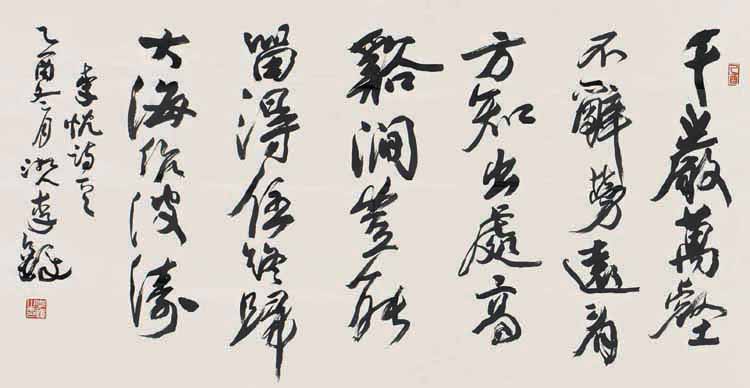 千巖萬壑
不辭勞遠看
方知出處高
谿澗豈能
留得住終歸
大海作波濤
李忱詩
乙酉二月李鐸